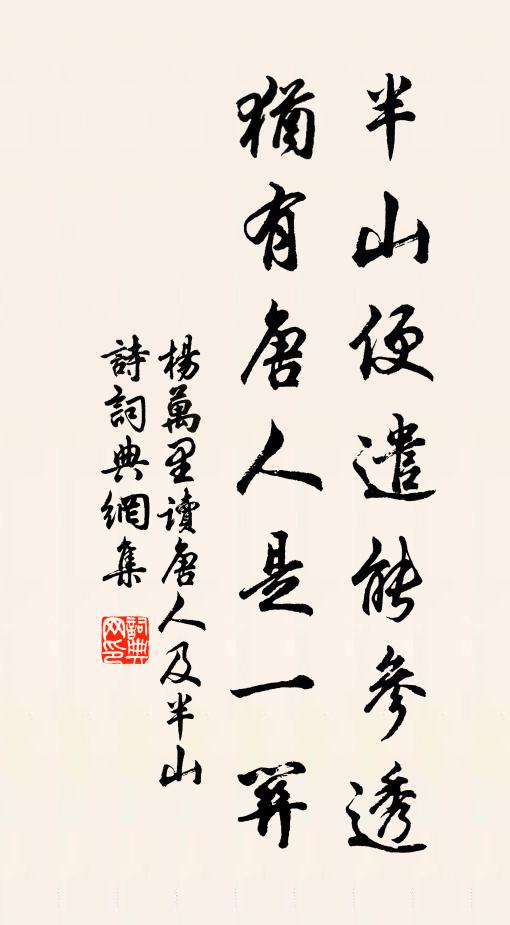 半山便遣能參透
猶有唐人是一關
楊萬里讀唐人及半山
詩詞典網集
詞典网印